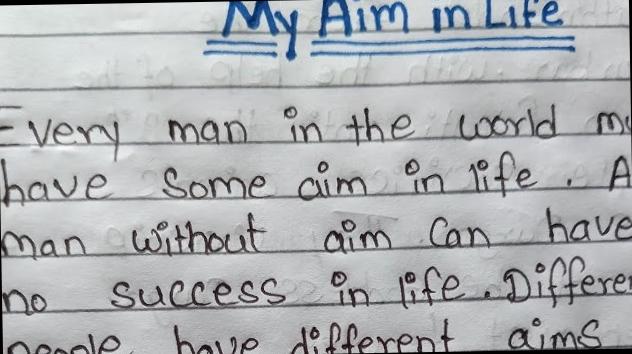 My Aim in Life
Every man in the world
have some aim in life. A
man without aim can have
no success in life.
people have different aims